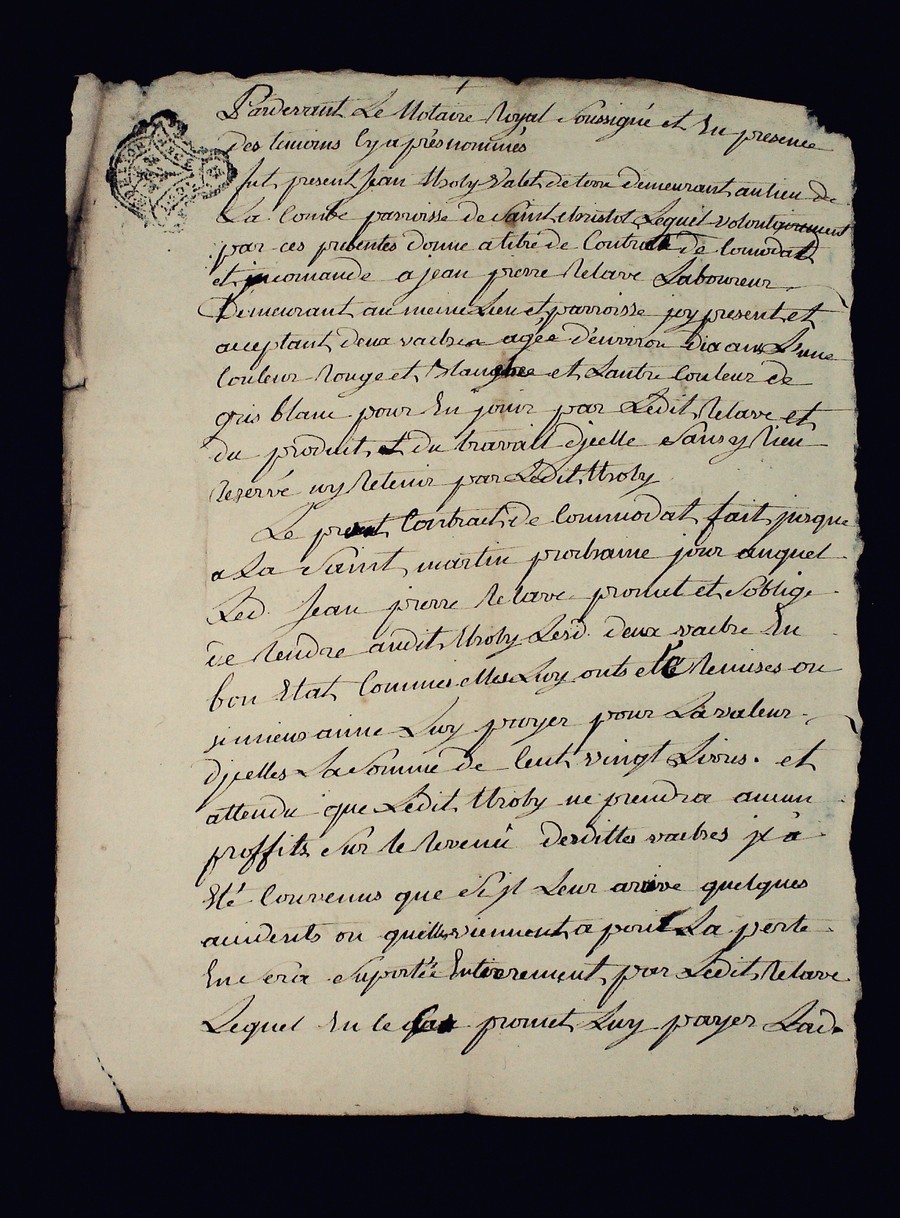 Pardevant Le Notaire Royal Soussigné et En presence
des temoins Cy aprés nommés
fut present Jean Uroly Valet de terre demeurant au lieu de
La Combe parroisse de Saint christol Lequel volontairement
par ces presentes donne a titre de Contrat de Comodat
et en comande a jean pierre Relave Laboureur
Demeurant au meme Lieu et parroisse jcy present et
acceptant deux vaches agée d'environ dix ans L'une
Couleur Rouge et Blanche et Lautre Couleur de
gris blanc pour En jouir par Ledit Relave et
du produit et du travail djcelle Sans y Rien
Reservé ny Retenir par Ledit Uroly
Le present Contract de Commodat fait jusque
a La Saint martin prochaine jour auquel
Led. Jean pierre Relave promet et Soblige
de Rendre audit Uroly Lesd. deux vache En
bon Etat Comme elles Luy onts eté Remises ou
si mieux aime Luy payer pour La valeur
djcelles La Somme de Cent vingt Livres. et
attendu que Ledit Uroly ne prendra aucun
proffits Sur le Revenu desdittes vaches jl a
Eté Convenus que Sijl Leur arrive quelques
accidents ou quelles viennent a perir La perte
En sera Suportée Entierement par Ledit Relave
Lequel En le cas promet Luy payer Lad.